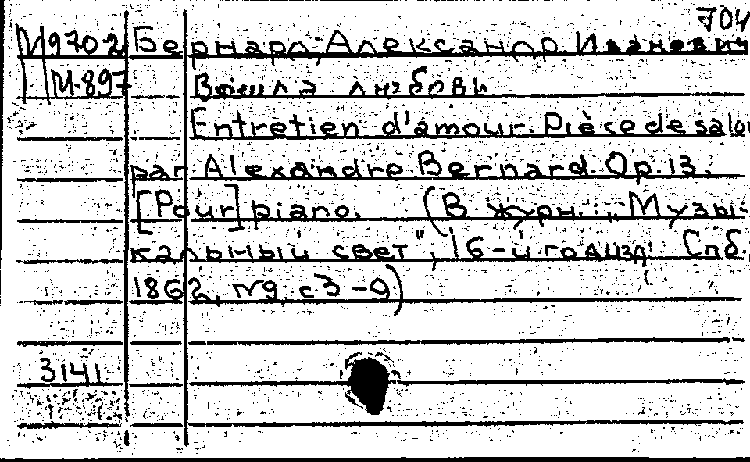 704
М9702 Бернард, Александр Иванович
М-897 любовь
Entretien d'amour. Pièce de salon
par Alexandre Bernard. Op. 13.
[Pour] piano. (В журн.: "Музы-
кальный свет", 16-й год изд. Спб.
1862, №9, с 3-9)
3141